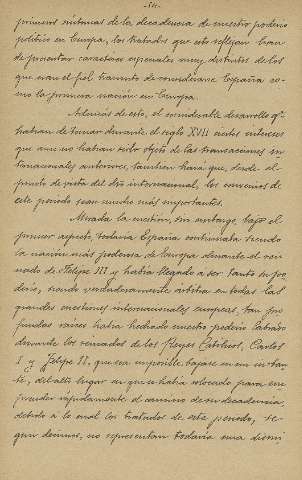 -54-
primeros síntomas de la decadencia de nuestro poderío
político en Europa, los tratados que esto reflejan han
de presentar caracteres especiales muy distintos de los
que eran el fiel trasunto de considerarse España co-
mo la primera nación en Europa.
Además de esto, el considerable desarrollo qe
habían de tomar durante el siglo XVII ciertos intereses
que aun no habían sido objeto de las transacciones in-
ternacionales anteriores, también hará que, desde el
punto de vista del dro internacional, los convenios de
este periodo sean mucho más importantes.
Mirada la cuestión, sin embargo, bajo el
primer aspecto, todavía España continuaba siendo
la nación más poderosa de Europa durante el rei-
nado de Felipe III y había llegado a ser tanto su po-
derío, siendo verdaderamente árbitra en todas las
grandes cuestiones internacionales europeas, tan pro-
fundas raíces había hechado nuestro poderío labrado
durante los reinados de los Reyes Católicos, Carlos
I y Felipe II, que era imposible bajase en un instan-
te, del alto lugar en que se había colocado para em-
prender rápidamente el camino de su decadencia,
debido a lo cual los tratados de este periodo, se-
gún veremos, no representan todavía una dismi